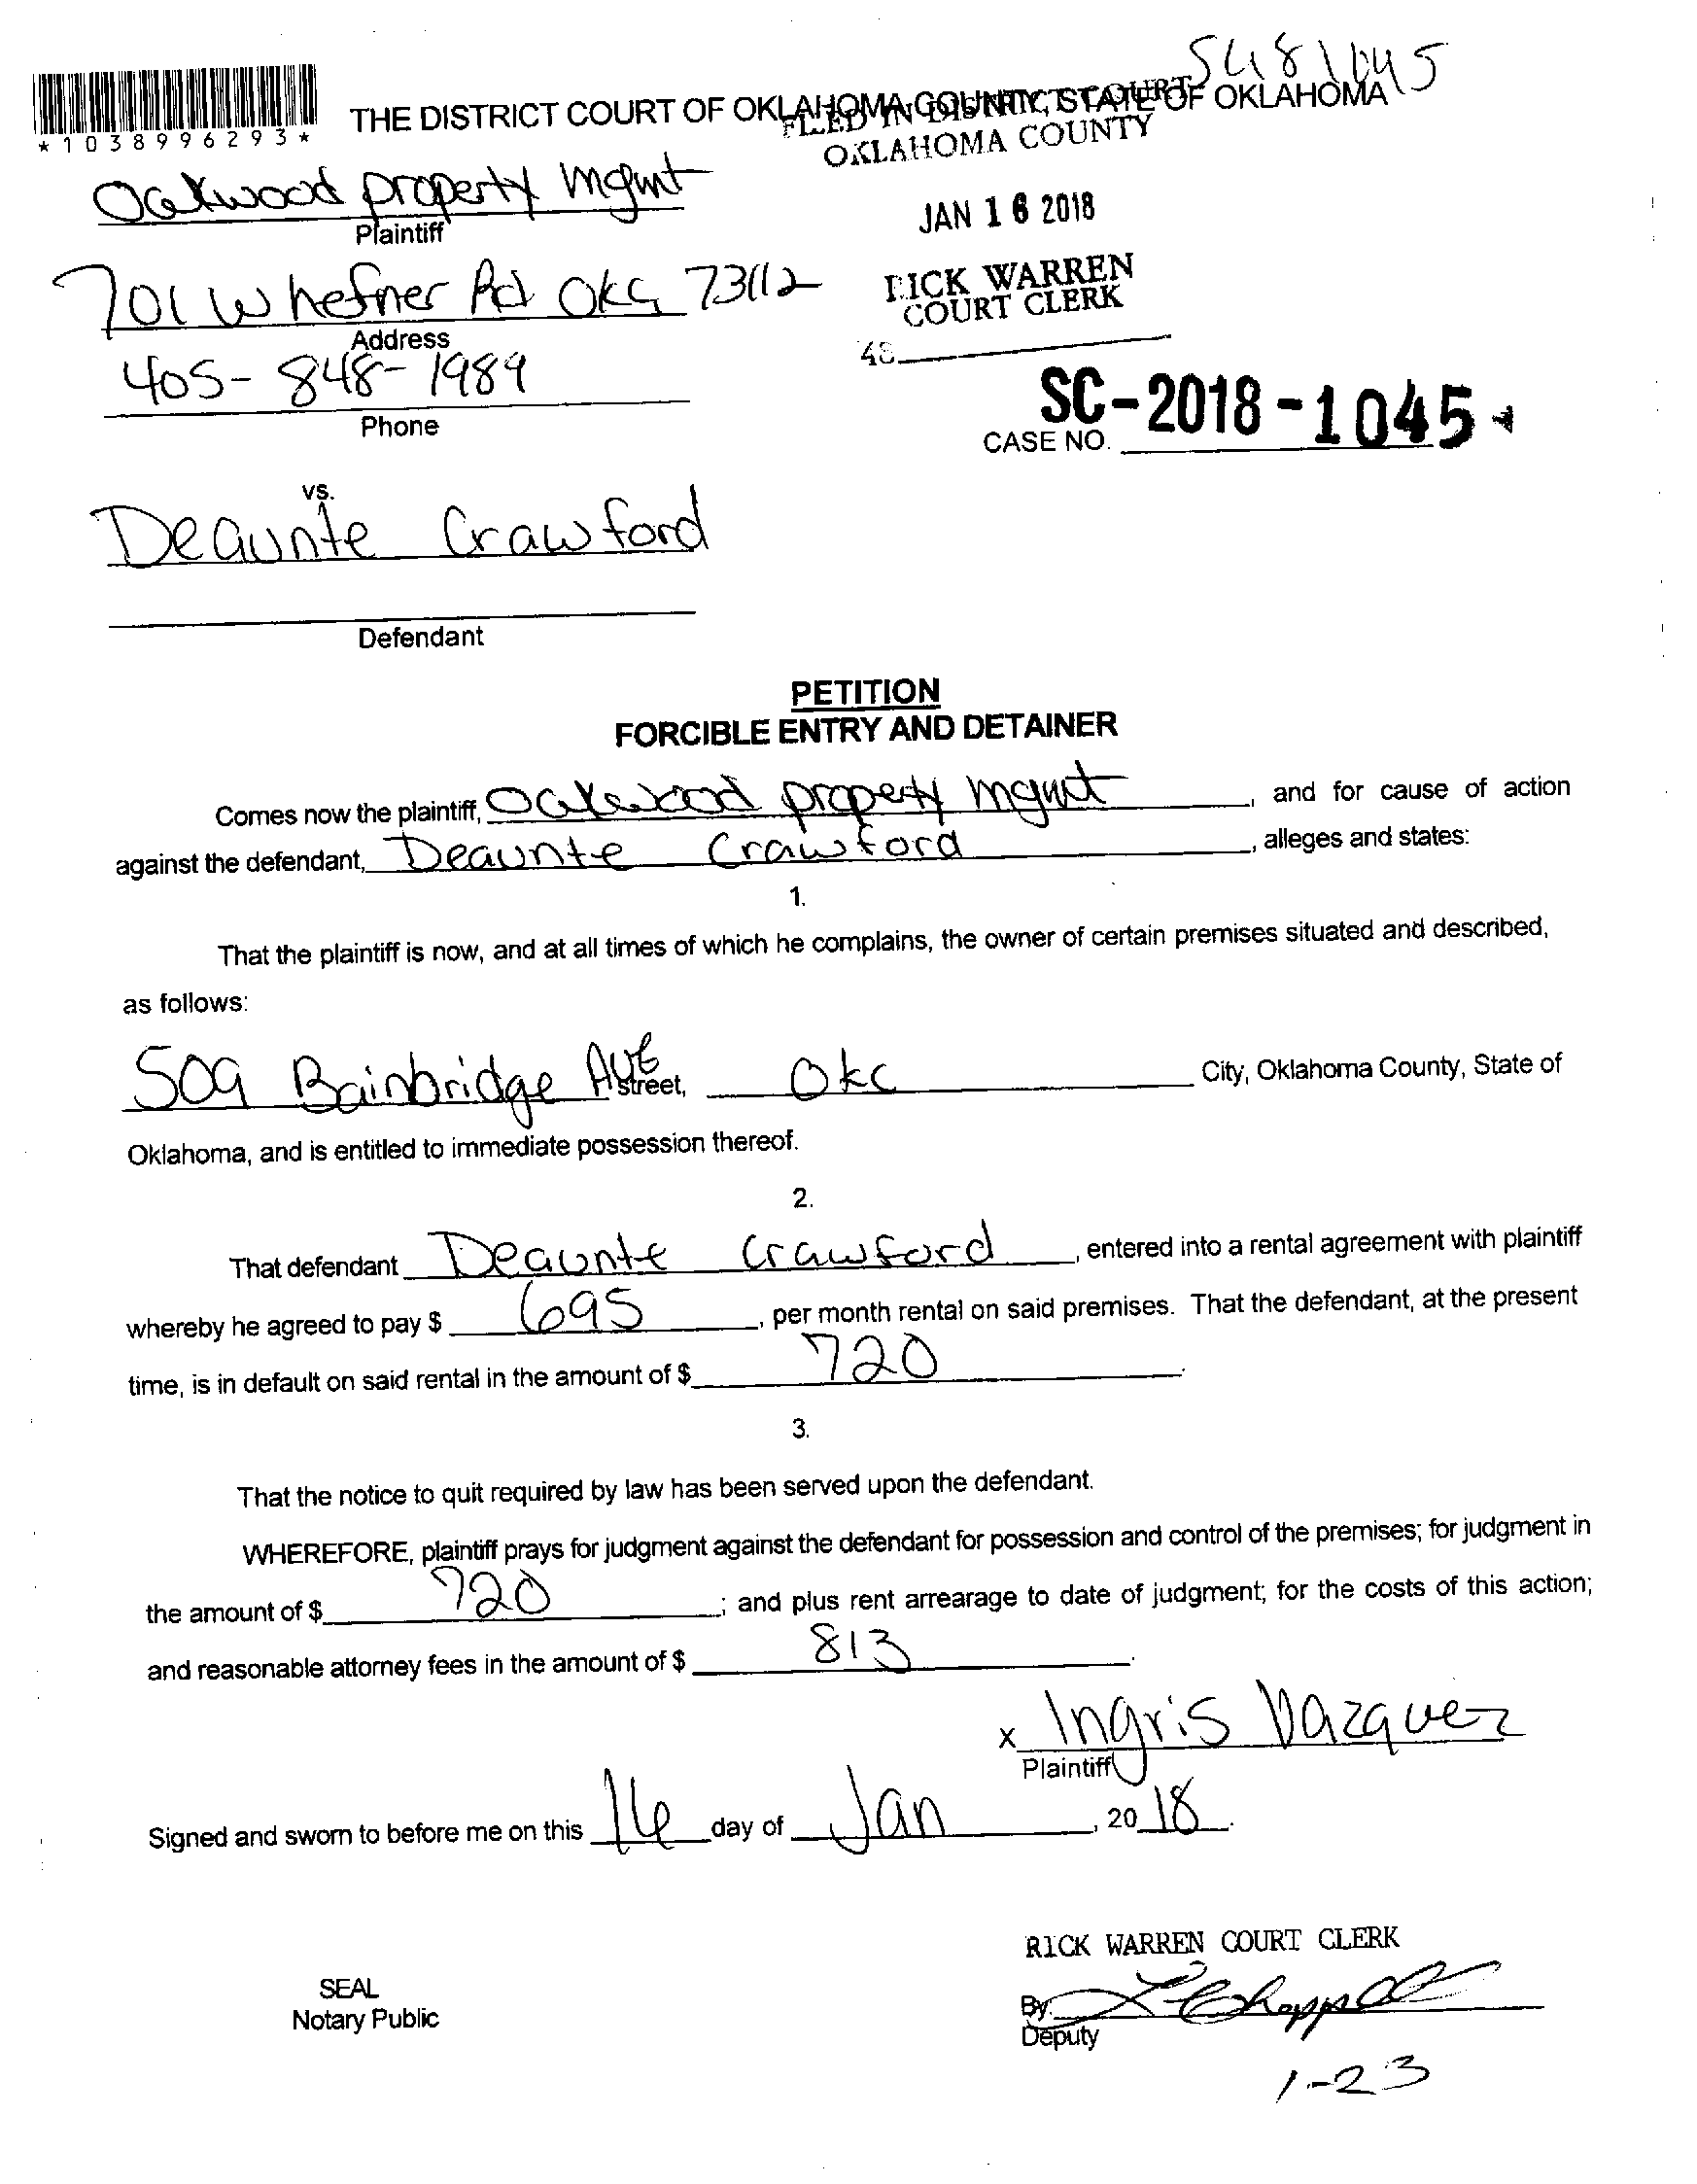 SC181045
THE DISTRICT COURT OF OKLAHOMA COUNTY, STATE OF OKLAHOMA
FILED IN DISTRICT COURT
OKLAHOMA COUNTY
*1038996293*
Oakwood property mgmt
Plaintiff
JAN 16 2018
701 W hefner Rd OKC 73112
Address
RICK WARREN
COURT CLERK
48
405-848-1989
Phone
SC-2018-1045
CASE NO.
vs.
Deaunte Crawford
Defendant
PETITION
FORCIBLE ENTRY AND DETAINER
Comes now the plaintiff, Oakwood property mgmt, and for cause of action
against the defendant, Deaunte Crawford, alleges and states:
1.
That the plaintiff is now, and at all times of which he complains, the owner of certain premises situated and described,
as follows:
509 Bainbridge Ave Street, Okc City, Oklahoma County, State of
Oklahoma, and is entitled to immediate possession thereof.
2.
That defendant Deaunte Crawford, entered into a rental agreement with plaintiff
whereby he agreed to pay $ 695, per month rental on said premises. That the defendant, at the present
time, is in default on said rental in the amount of $ 720.
3.
That the notice to quit required by law has been served upon the defendant.
WHEREFORE, plaintiff prays for judgment against the defendant for possession and control of the premises; for judgment in
the amount of $ 720; and plus rent arrearage to date of judgment; for the costs of this action;
and reasonable attorney fees in the amount of $ 813.
x Ingris Vazquez
Plaintiff
Signed and sworn to before me on this 16 day of Jan, 2018.
RICK WARREN COURT CLERK
SEAL
Notary Public
By: L Chappell
Deputy
1-23